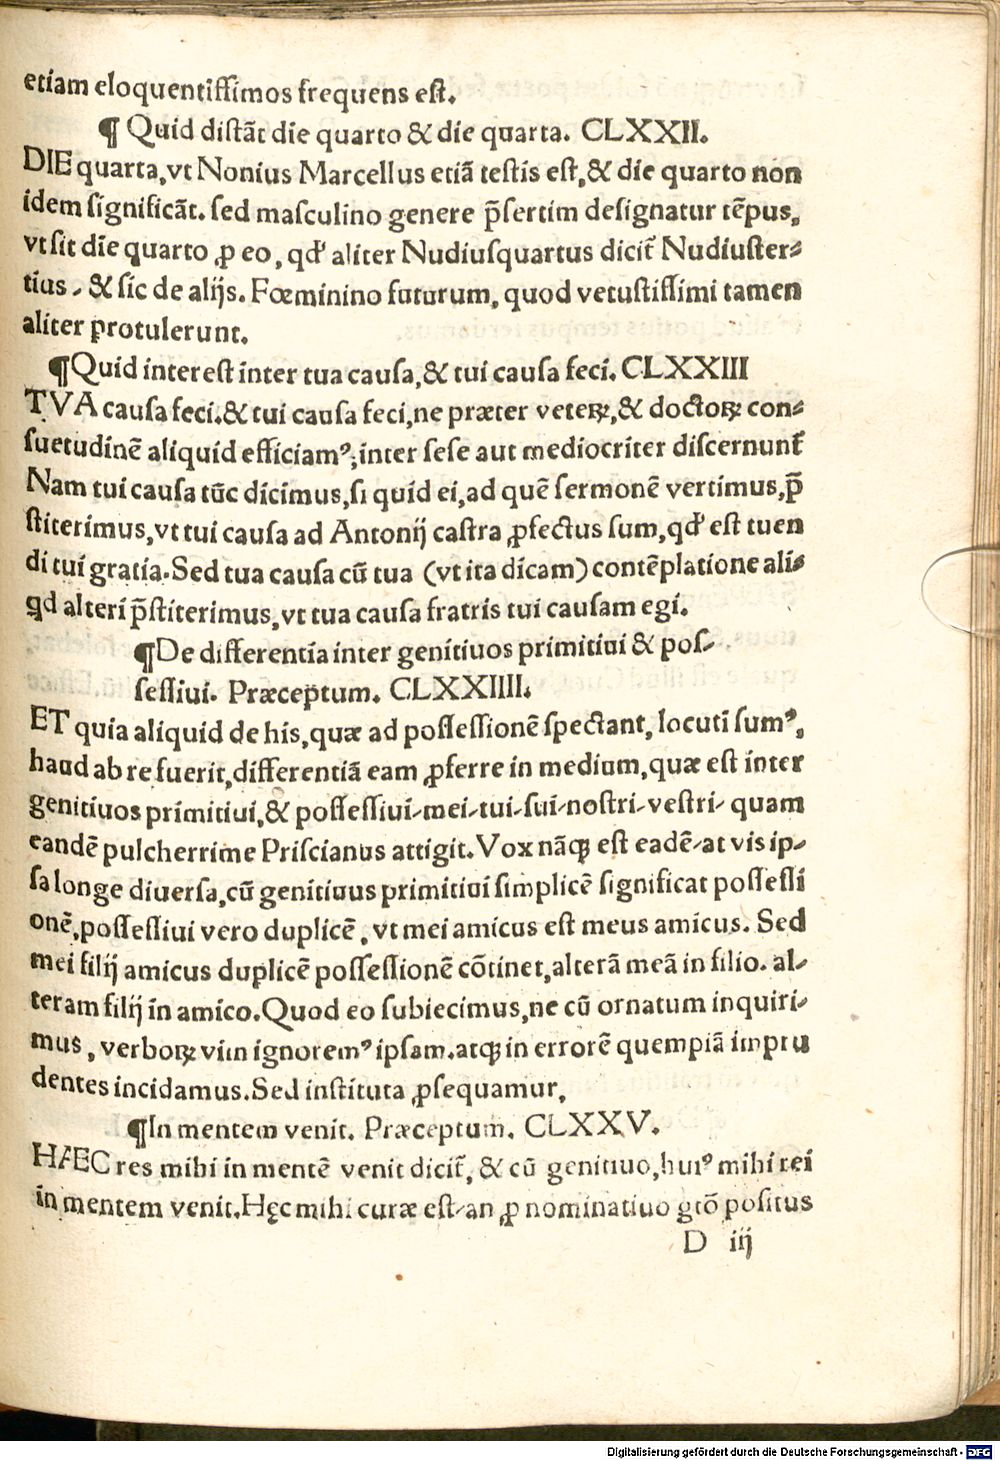 etiam eloquentiſſimos frequens eſt.
¶ Quid diſtãt die quarto & die quarta. CLXXII.
DIE quarta,vt Nonius Marcellus etiã teſtis eſt,& die quarto non
idem ſignificãt. ſed maſculino genere p̃ſertim deſignatur tẽpus,
vt ſit die quarto ꝓ eo, qđ aliter Nudiuſquartus dicit᷑ Nudiuſter-
tius, & ſic de alijs. Fœminino futurum, quod vetuſtiſſimi tamen
aliter protulerunt.
¶Quid intereſt inter tua cauſa,& tui cauſa feci. CLXXIII
TVA cauſa feci.& tui cauſa feci,ne præter veteꝝ,& doctoꝝ con-
ſuetudinẽ aliquid efficiamꝰ;inter ſeſe aut mediocriter diſcernunt᷑
Nam tui cauſa tũc dicimus,ſi quid ei,ad quẽ ſermonẽ vertimus,p̃
ſtiterimus,vt tui cauſa ad Antonij caſtra ꝓfectus ſum,qđ eſt tuen
di tui gratia.Sed tua cauſa cũ tua (vt ita dicam) contẽplatione ali-
qd alteri p̃ſtiterimus,vt tua cauſa fratris tui cauſam egi.
¶De differentia inter genitiuos primitiui & poſ-
ſeſſiui. Præceptum. CLXXIIII.
ET quia aliquid de his,quæ ad poſſeſſionẽ ſpectant, locuti ſumꝰ,
haud ab re fuerit,differentiã eam ꝓferre in medium,quæ eſt inter
genitiuos primitiui,& poſſeſſiui-mei-tui-ſui-noſtri-veſtri- quam
eandẽ pulcherrime Priſcianus attigit.Vox nãqꝫ eſt eadẽ-at vis ip-
ſa longe diuerſa,cũ genitiuus primitiui ſimplicẽ ſignificat poſſeſſi
onẽ,poſſeſſiui vero duplicẽ, vt mei amicus eſt meus amicus. Sed
mei filij amicus duplicẽ poſſeſſionẽ cõtinet,alterã meã in filio. al-
teram filij in amico.Quod eo ſubiecimus,ne cũ ornatum inquiri-
mus, verboꝝ vim ignoremꝰ ipſam.atqꝫ in errorẽ quempiã impru
dentes incidamus.Sed inſtituta ꝓſequamur,
¶In mentem venit. Præceptum. CLXXV.
HAEC res mihi in mentẽ venit dicit᷑, & cũ genitiuo,huiꝰ mihi rei
in mentem venit.Hęc mihi curæ eſt-an ꝓ nominatiuo gtõ poſitus
D iij
Digitalisierung gefördert durch die Deutsche Forschungsgemeinschaft - DFG